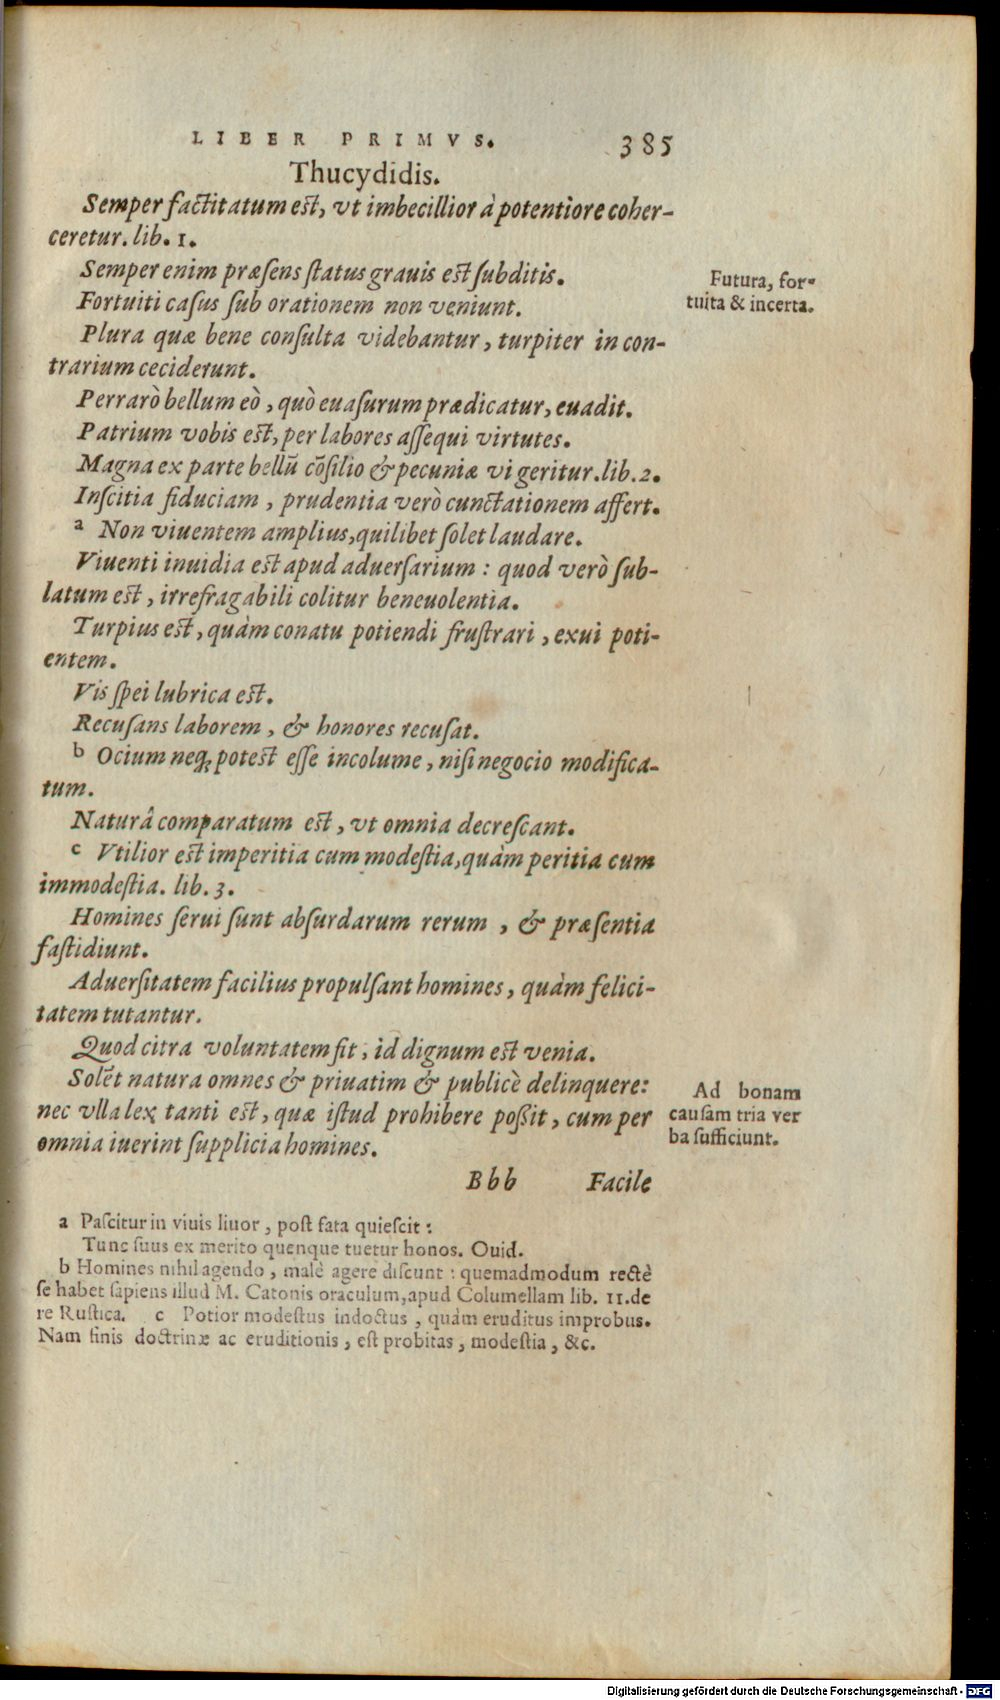 LIBER PRIMVS. 385
Thucydidis.
Semper factitatum est, vt imbecillior à potentiore coher-
ceretur. lib. 1.
Semper enim præsens status grauis est subditis.
Futura, for-
Fortuiti casus sub orationem non veniunt.
tuita & incerta.
Plura quæ bene consulta videbantur, turpiter in con-
trarium ceciderunt.
Perrarò bellum eò, quò euasurum prædicatur, euadit.
Patrium vobis est, per labores assequi virtutes.
Magna ex parte bellū cōsilio & pecuniæ vi geritur. lib. 2.
Inscitia fiduciam, prudentia verò cunctationem affert.
a Non viuentem amplius, quilibet solet laudare.
Viuenti inuidia est apud aduersarium : quod verò sub-
latum est, irrefragabili colitur beneuolentia.
Turpius est, quàm conatu potiendi frustrari, exui poti-
entem.
Vis spei lubrica est.
Recusans laborem, & honores recusat.
b Ocium neq; potest esse incolume, nisi negocio modifica-
tum.
Naturâ comparatum est, vt omnia decrescant.
c Vtilior est imperitia cum modestia, quàm peritia cum
immodestia. lib. 3.
Homines serui sunt absurdarum rerum, & præsentia
fastidiunt.
Aduersitatem facilius propulsant homines, quàm felici-
tatem tutantur.
Quod citra voluntatem fit, id dignum est venia.
Solet natura omnes & priuatim & publicè delinquere:
Ad bonam
nec vlla lex tanti est, quæ istud prohibere possit, cum per
causam tria ver
omnia iuerint supplicia homines.
ba sufficiunt.
Bbb Facile
a Pascitur in viuis liuor, post fata quiescit :
Tunc suus ex merito quenque tuetur honos. Ouid.
b Homines nihil agendo, malè agere discunt : quemadmodum rectè
se habet sapiens illud M. Catonis oraculum, apud Columellam lib. 11. de
re Rustica. c Potior modestus indoctus, quàm eruditus improbus.
Nam finis doctrinæ ac eruditionis, est probitas, modestia, &c.
Digitalisierung gefördert durch die Deutsche Forschungsgemeinschaft - DFG